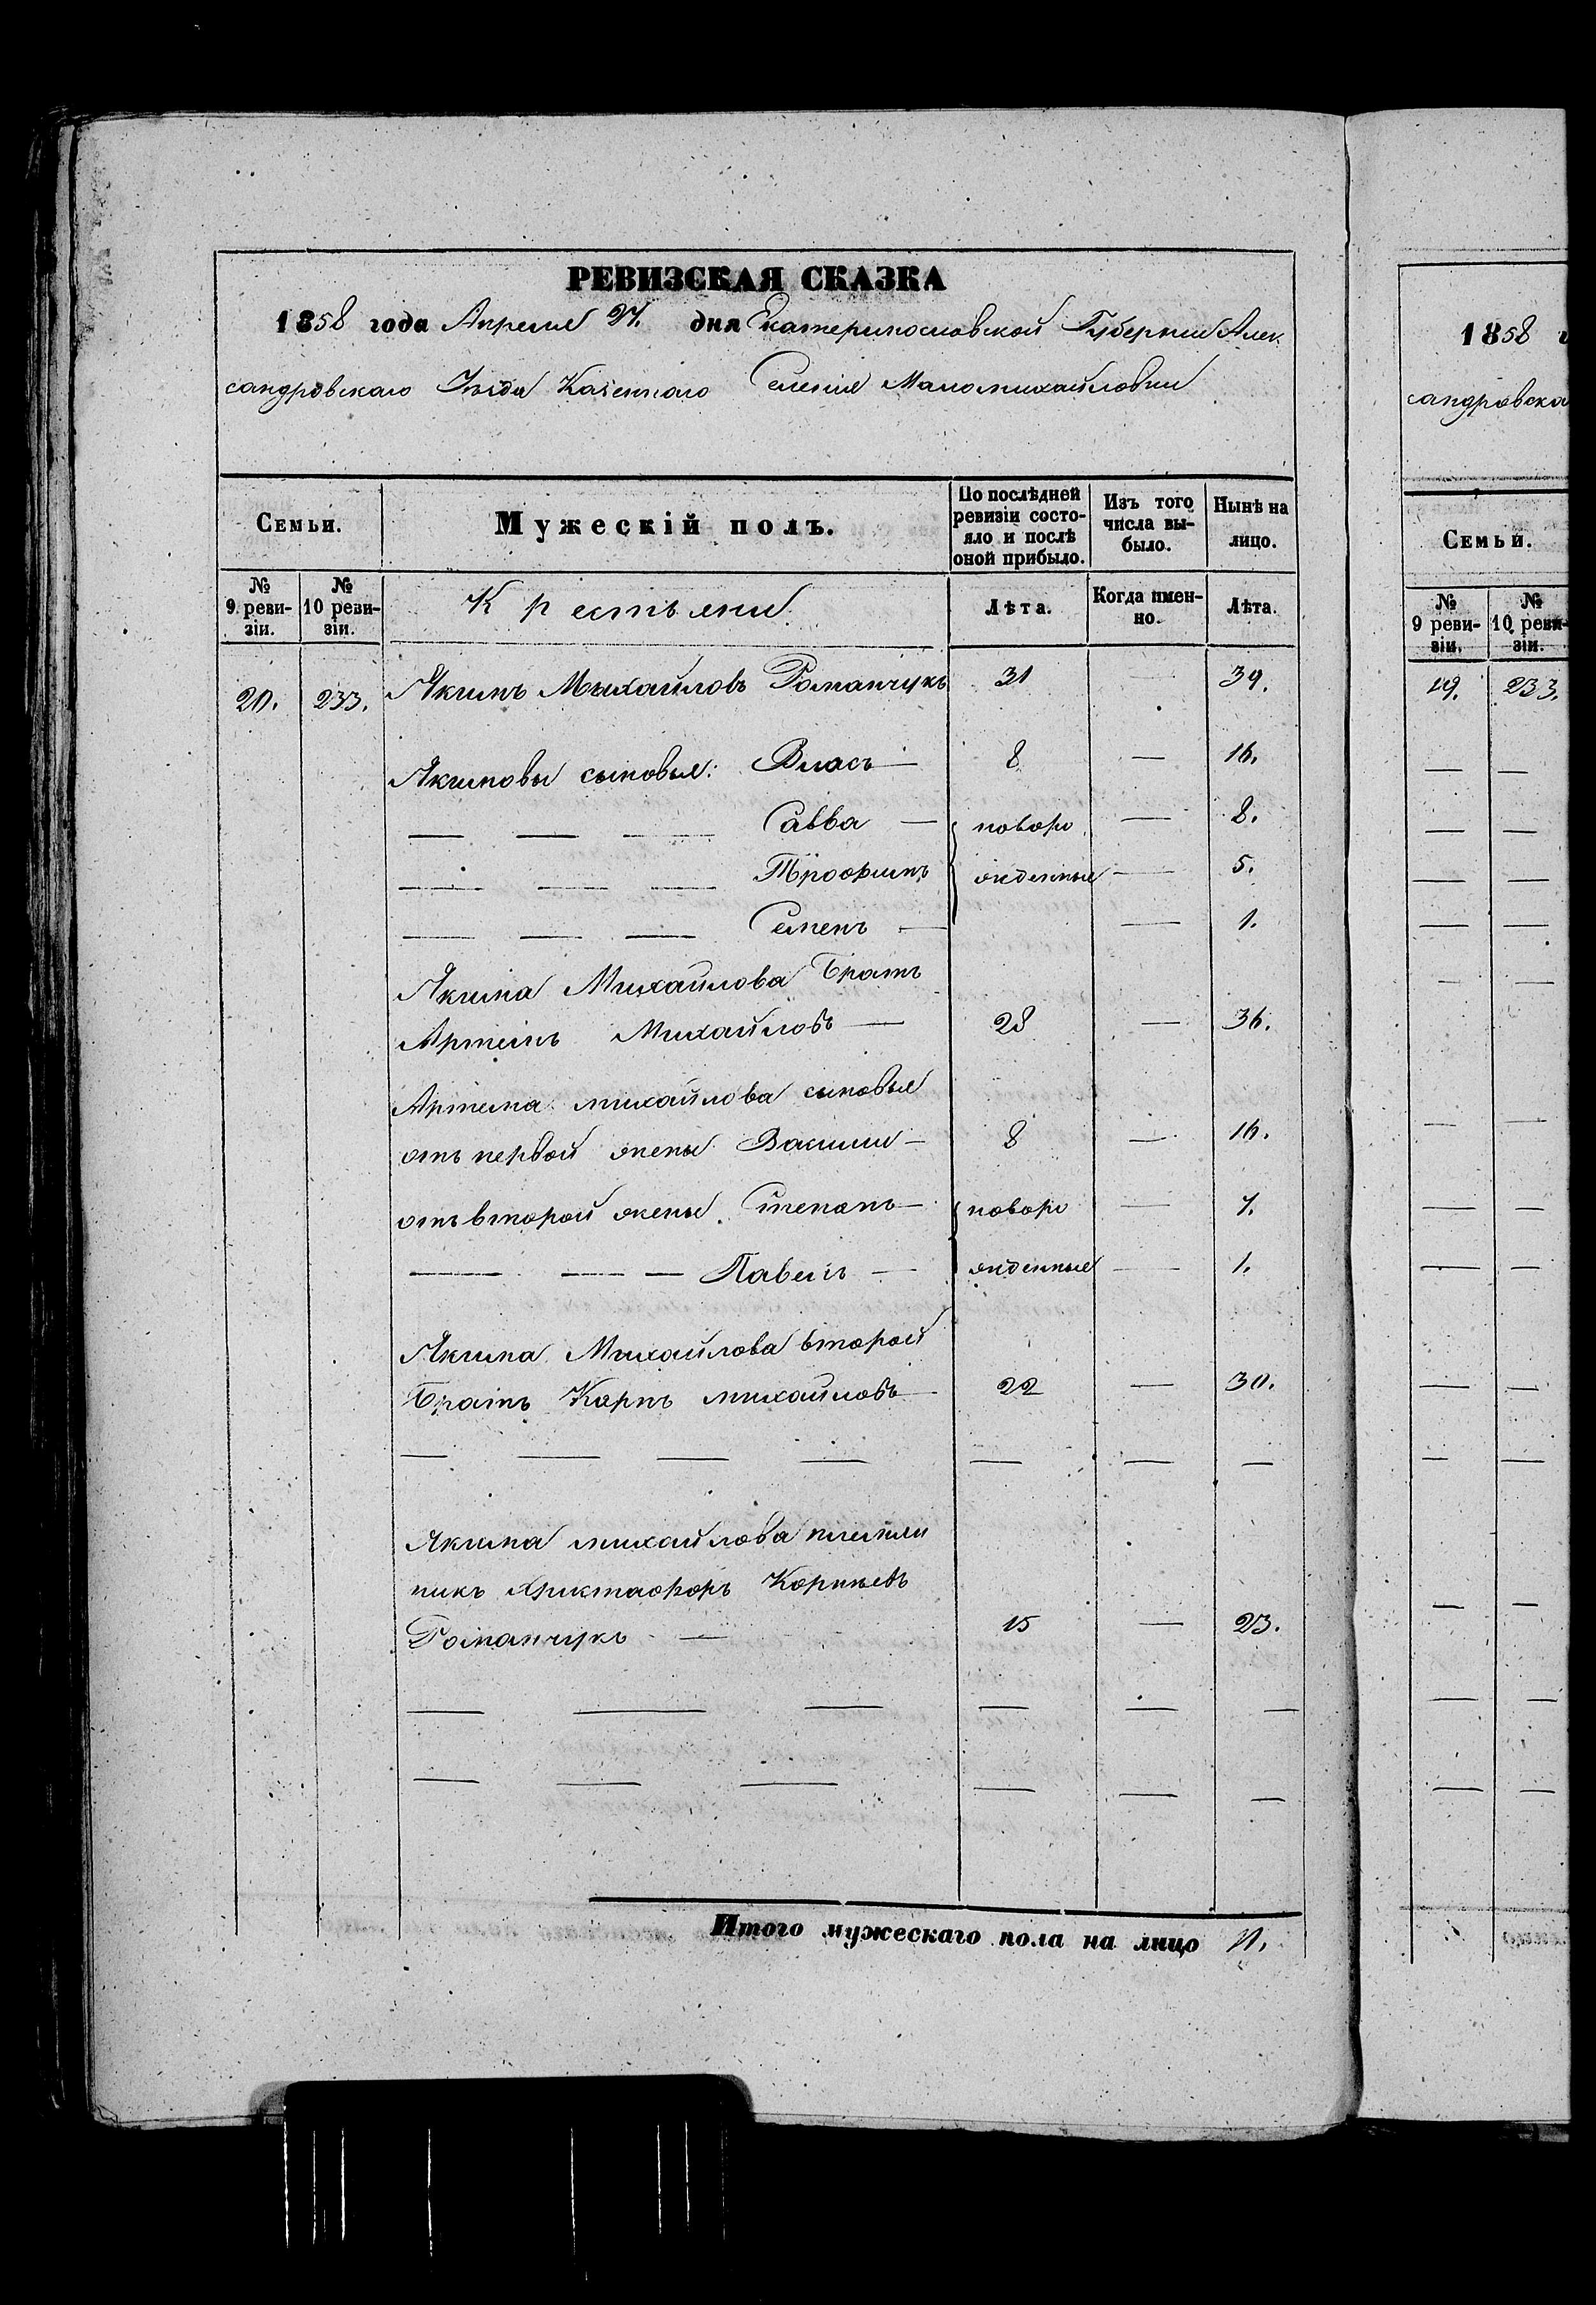 РЕВИЗСКАЯ СКАЗКА
1858 года Апреля 27. дня Екатеринославской Губернии Алек
сандровскаго Уѣзда Казеннаго Селенія Маломихайловки
Семьи.
Мужескій полъ.
По послѣдней ревизіи состо-
яло и послѣ оной прибыло.
Изъ того числа вы-
было.
Нынѣ на лицо.
№ 9 реви-
зіи.
№ 10 реви-
зіи.
Крестьяне
Лѣта.
Когда имен-
но.
Лѣта.
20. 233. Якимъ Михайловъ Романчукъ 31 39.
Якимовы сыновья: Власъ — 8 — 16.
— — — Савва — новоро — 8.
— — — Трофимъ жденные — 5.
— — — Семенъ — — 1.
Якима Михайлова Братъ
Артемъ Михайловъ — 28 — 36.
Артема михайлова сыновья
отъ первой жены Васили — 8 — 16.
отъ второй жены Степанъ — новоро — 7.
— — — Павелъ — жденные — 1.
Якима Михайлова второй
Братъ Карпъ михайловъ — 22 — 30.
— — — — — — —
Якима михайлова племян
никъ Христофоръ Корнѣевъ
Романчукъ — 15 — 23.
— — — — — —
— — — — — —
Итого мужескаго пола на лицо 11.
1858
сандровска
Семьи.
№ 9 реви-
зіи.
№ 10 реви-
зіи.
233.